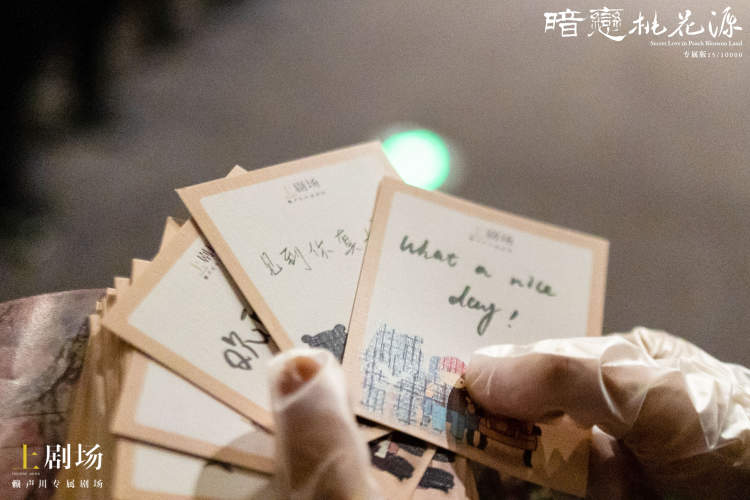 暗戀桃花源
Secret Love in Peach Blossom Land
专属版15/10000
上剧场
上剧场
What a nice
day!
见到你真
晚
上剧场
赖声川专属剧场